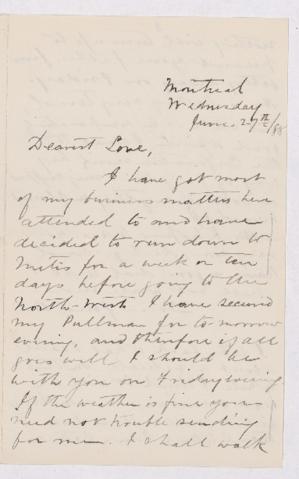 Montreal
Wednesday
June. 27th/88
Dearest Love,
I have got most
of my business matters here
attended to and have
decided to run down to
Metis for a week or ten
days before going to the
North-West. I have secured
my Pullman for to morrow
evening, and therefore if all
goes well I should be
with you on Friday evening
If the weather is fine you
need not trouble sending
for me. I shall walk